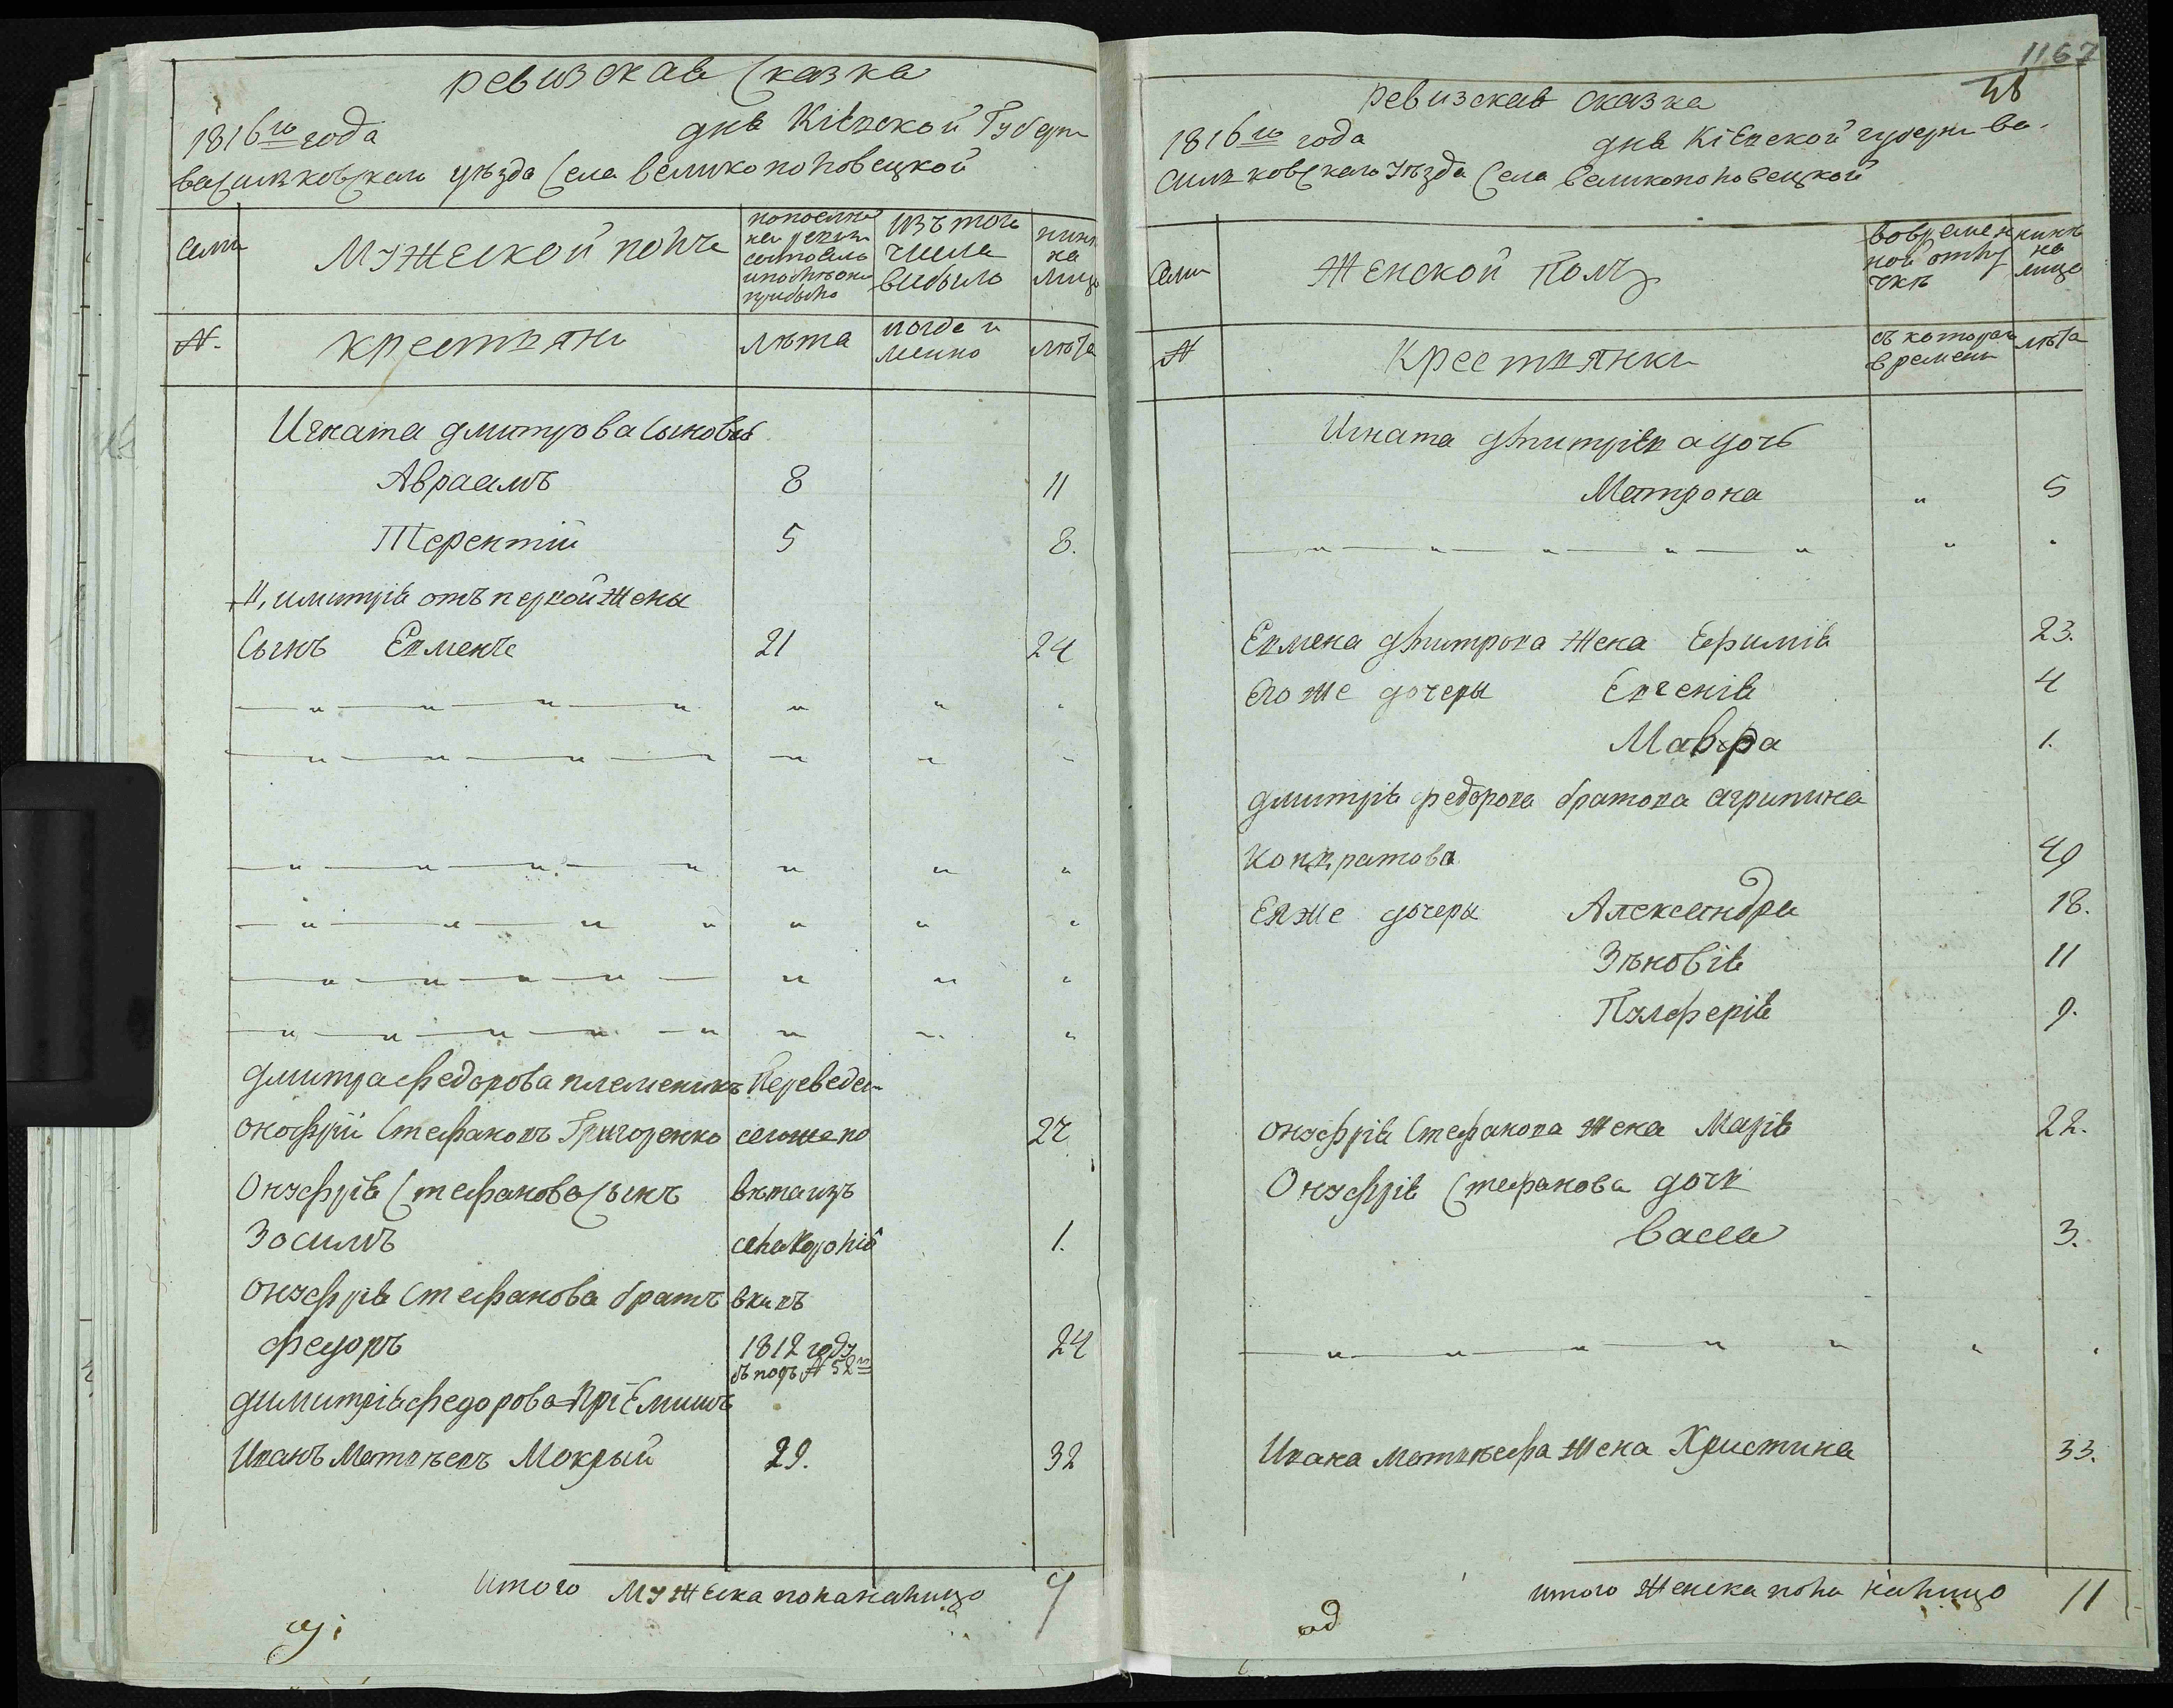 ревизская сказка
1816го года дня Кіевской Губерн
василковскаго уѣзда села великополовецкой
семи
Мужескои полъ
по последней ревизіи состояло и после оной прибыло
изъ того числа выбыло
нынѣ на лицо
№.
крестьяне
лѣта
когда именно
лѣта
Игната дмитрова сыновья
Авраамъ 8 11
Терентій 5 8.
димитрія отъ первой жены
Сынъ Евменъ 21 24
дмитра федорова племеникъ Переведен
онофрій Стефановъ Григоренко 27
Онуфрія Стефанова сынъ
Зосимъ 1.
Онуфрія Стефанова братъ
федоръ 1812 году 24
подъ № 52м
димитрія федорова пріемишъ
Иванъ Матвѣевъ Мокрый 29. 32
Итого мужеска пола налицо 7
1167
ревизская сказка
1816го года дня Кіевской губерн ва-
силковскаго уѣзда села великополовецкой
Семи
Женской полъ
во временной отлучкѣ
нынѣ на лицо
№
Крестьянки
съ котораго времени
лѣта
Игната дмитріева дочь
Матрона „ 5
Евмена дмитрова жена Ефимія 23.
Его же дочеры Евгенія 4
Мавра 1.
дмитрія федорова братова агрипина
Кондратова 49
Ея же дочеры Александра 18.
Зѣновія 11
Пулферія 9.
онуфрія Стефанова жена Марія 22.
Онуфрія Стефанова дочь
васса 3.
Ивана матвѣефа жена Христина 33.
итого женска пола налицо 11